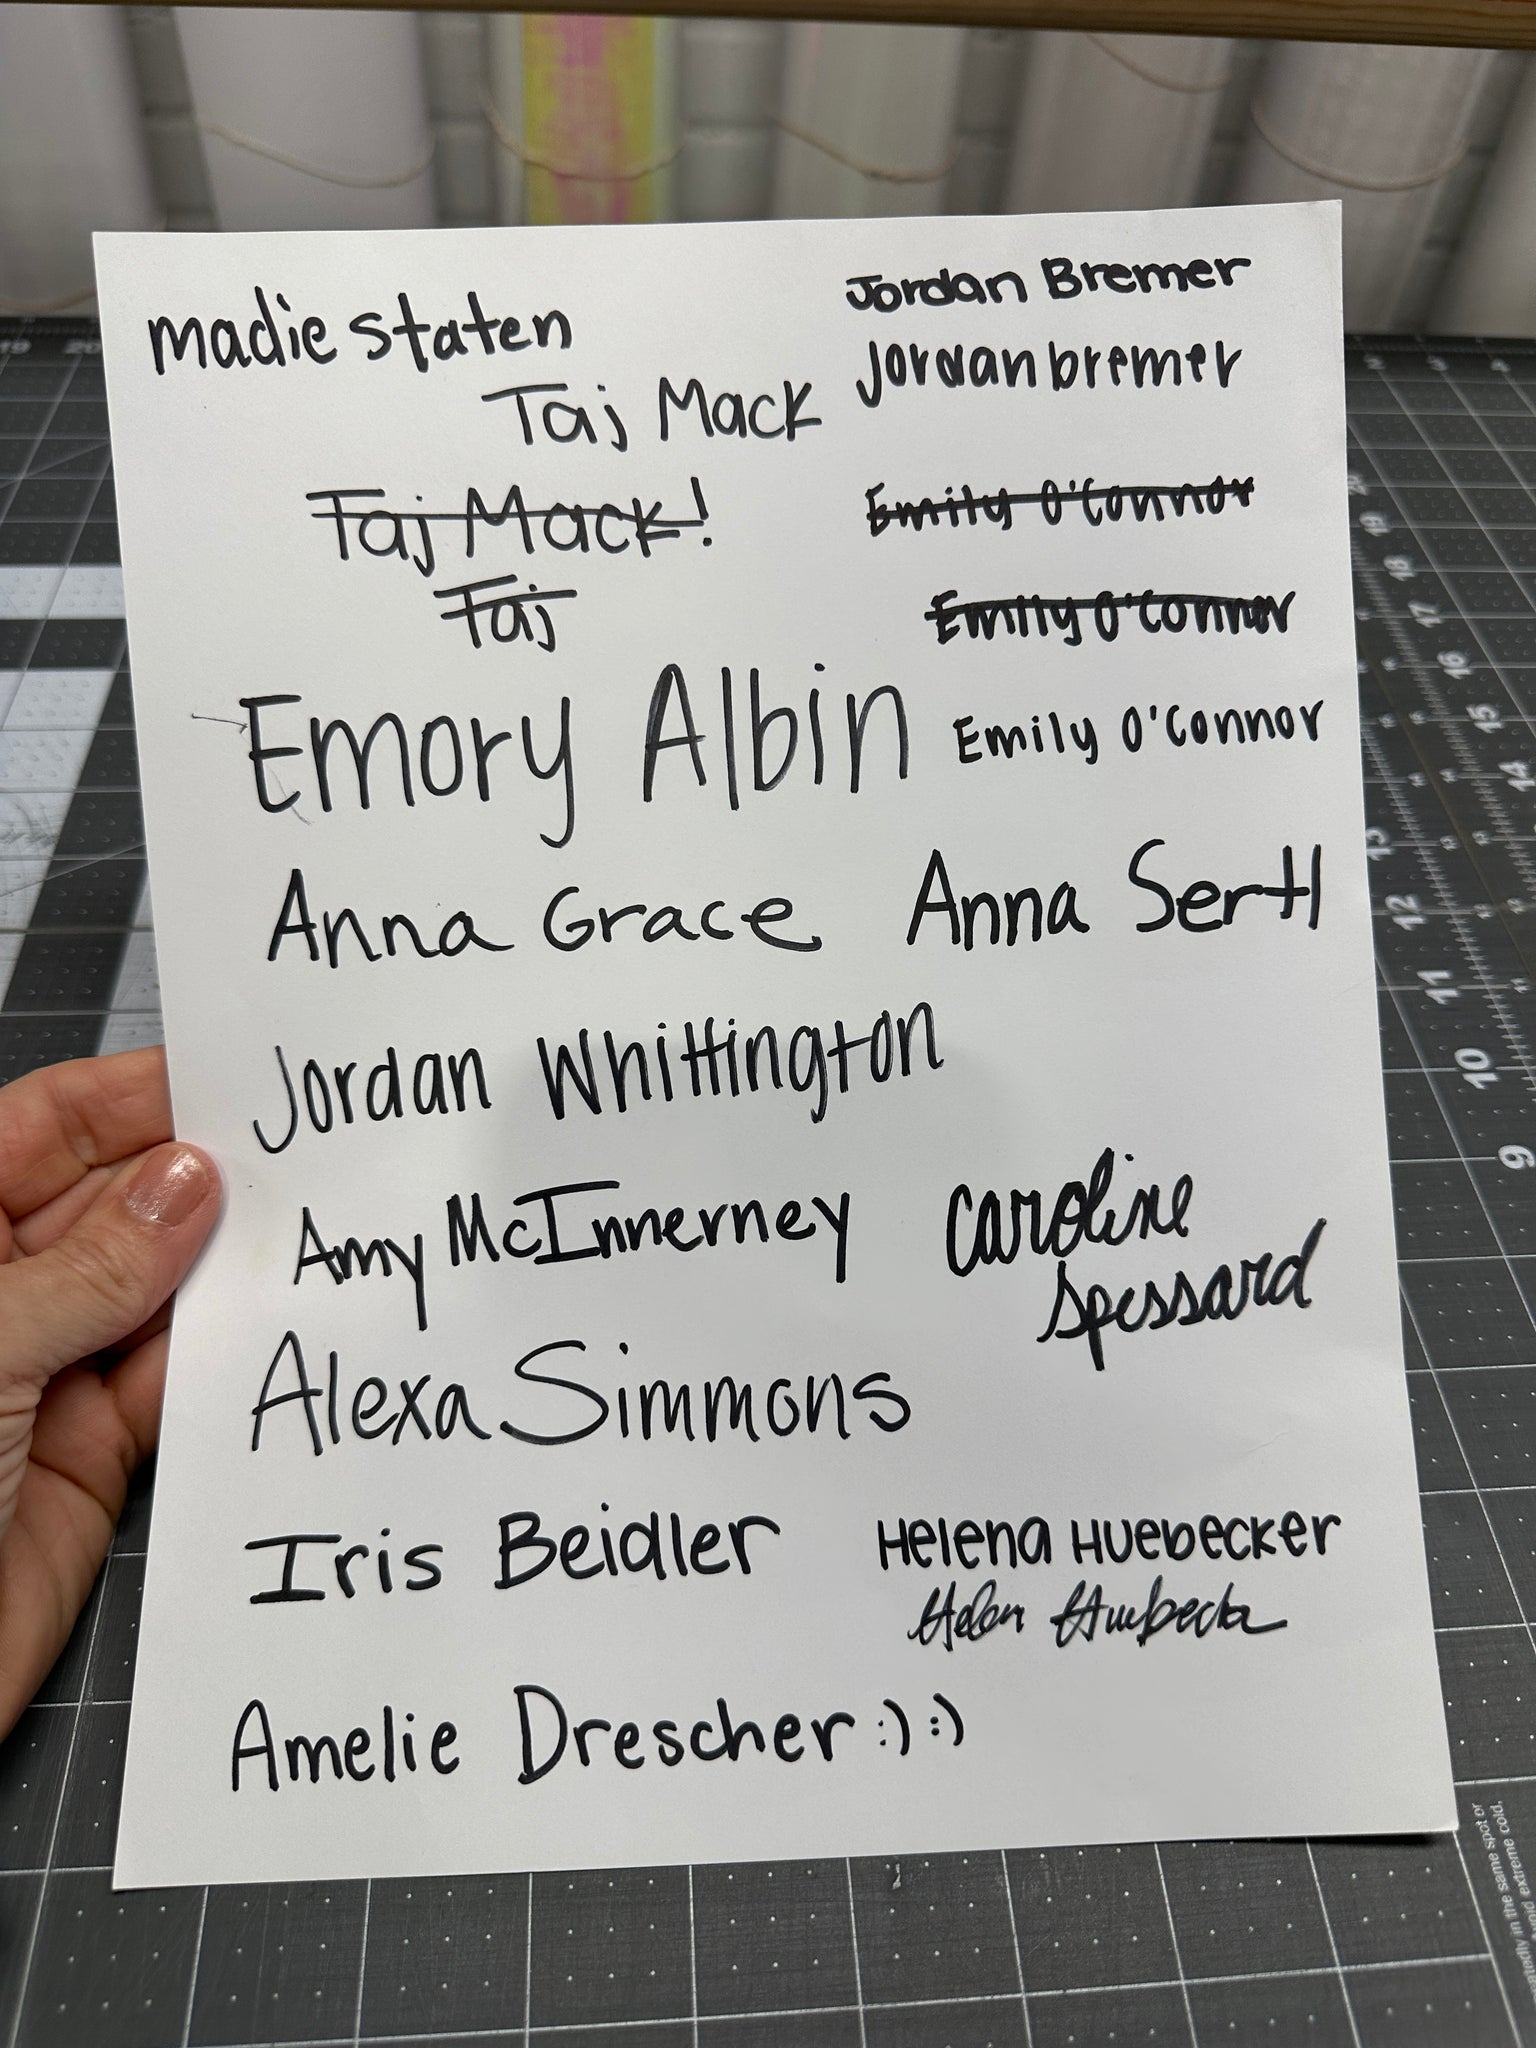 madie staten
Jordan Bremer
Jordan bremer
Taj Mack
Taj Mack!
Emily O'Connor
Taj
Emily O'Connor
Emory Albin
Emily O'Connor
Anna Grace
Anna Sertl
Jordan Whittington
Amy McInnerney
Caroline
Spessard
Alexa Simmons
Iris Beidler
Helena Huebecker
Amelie Drescher :) :)
19
20
2
3
20
19
18
17
16
15
14
13
12
11
10
9
tedly in the same spot or
extreme cold.